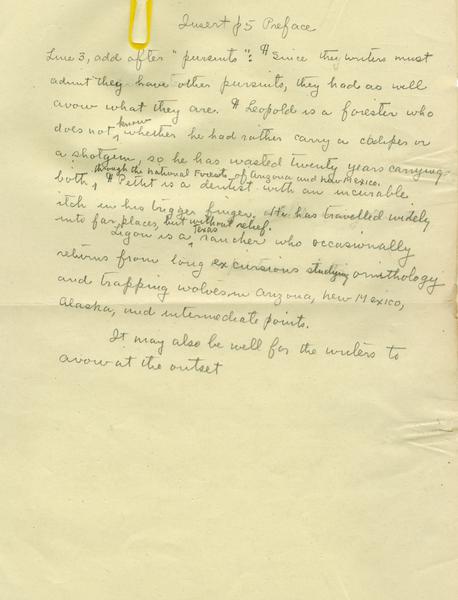 Insert p5 Preface
Line 3, add after "pursuits": ¶ Since the writers must
admit they have other pursuits, they had as well
avow what they are. ¶ Leopold is a forester who
know
does not, whether he had rather carry a caliper or
a shotgun, so he has wasted twenty years carrying
through the National Forests of Arizona and New Mexico.
both, ¶ Pettit is a dentist with an incurable
itch in his trigger finger. He has travelled widely
into far places, but without relief.
Texas
Ligon is a rancher who occasionally
returns from long excursions studying ornithology
and trapping wolves in Arizona, New Mexico,
Alaska, and intermediate points.
It may also be well for the writers to
avow at the outset